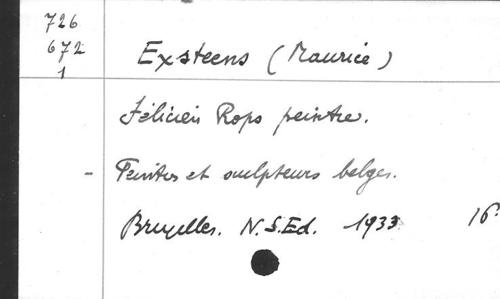 726
672
1
Exsteens (Maurice)
Félicien Rops peintre.
- Peintres et sculpteurs belges.
Bruxelles. N.S.Ed. 1933. 16°